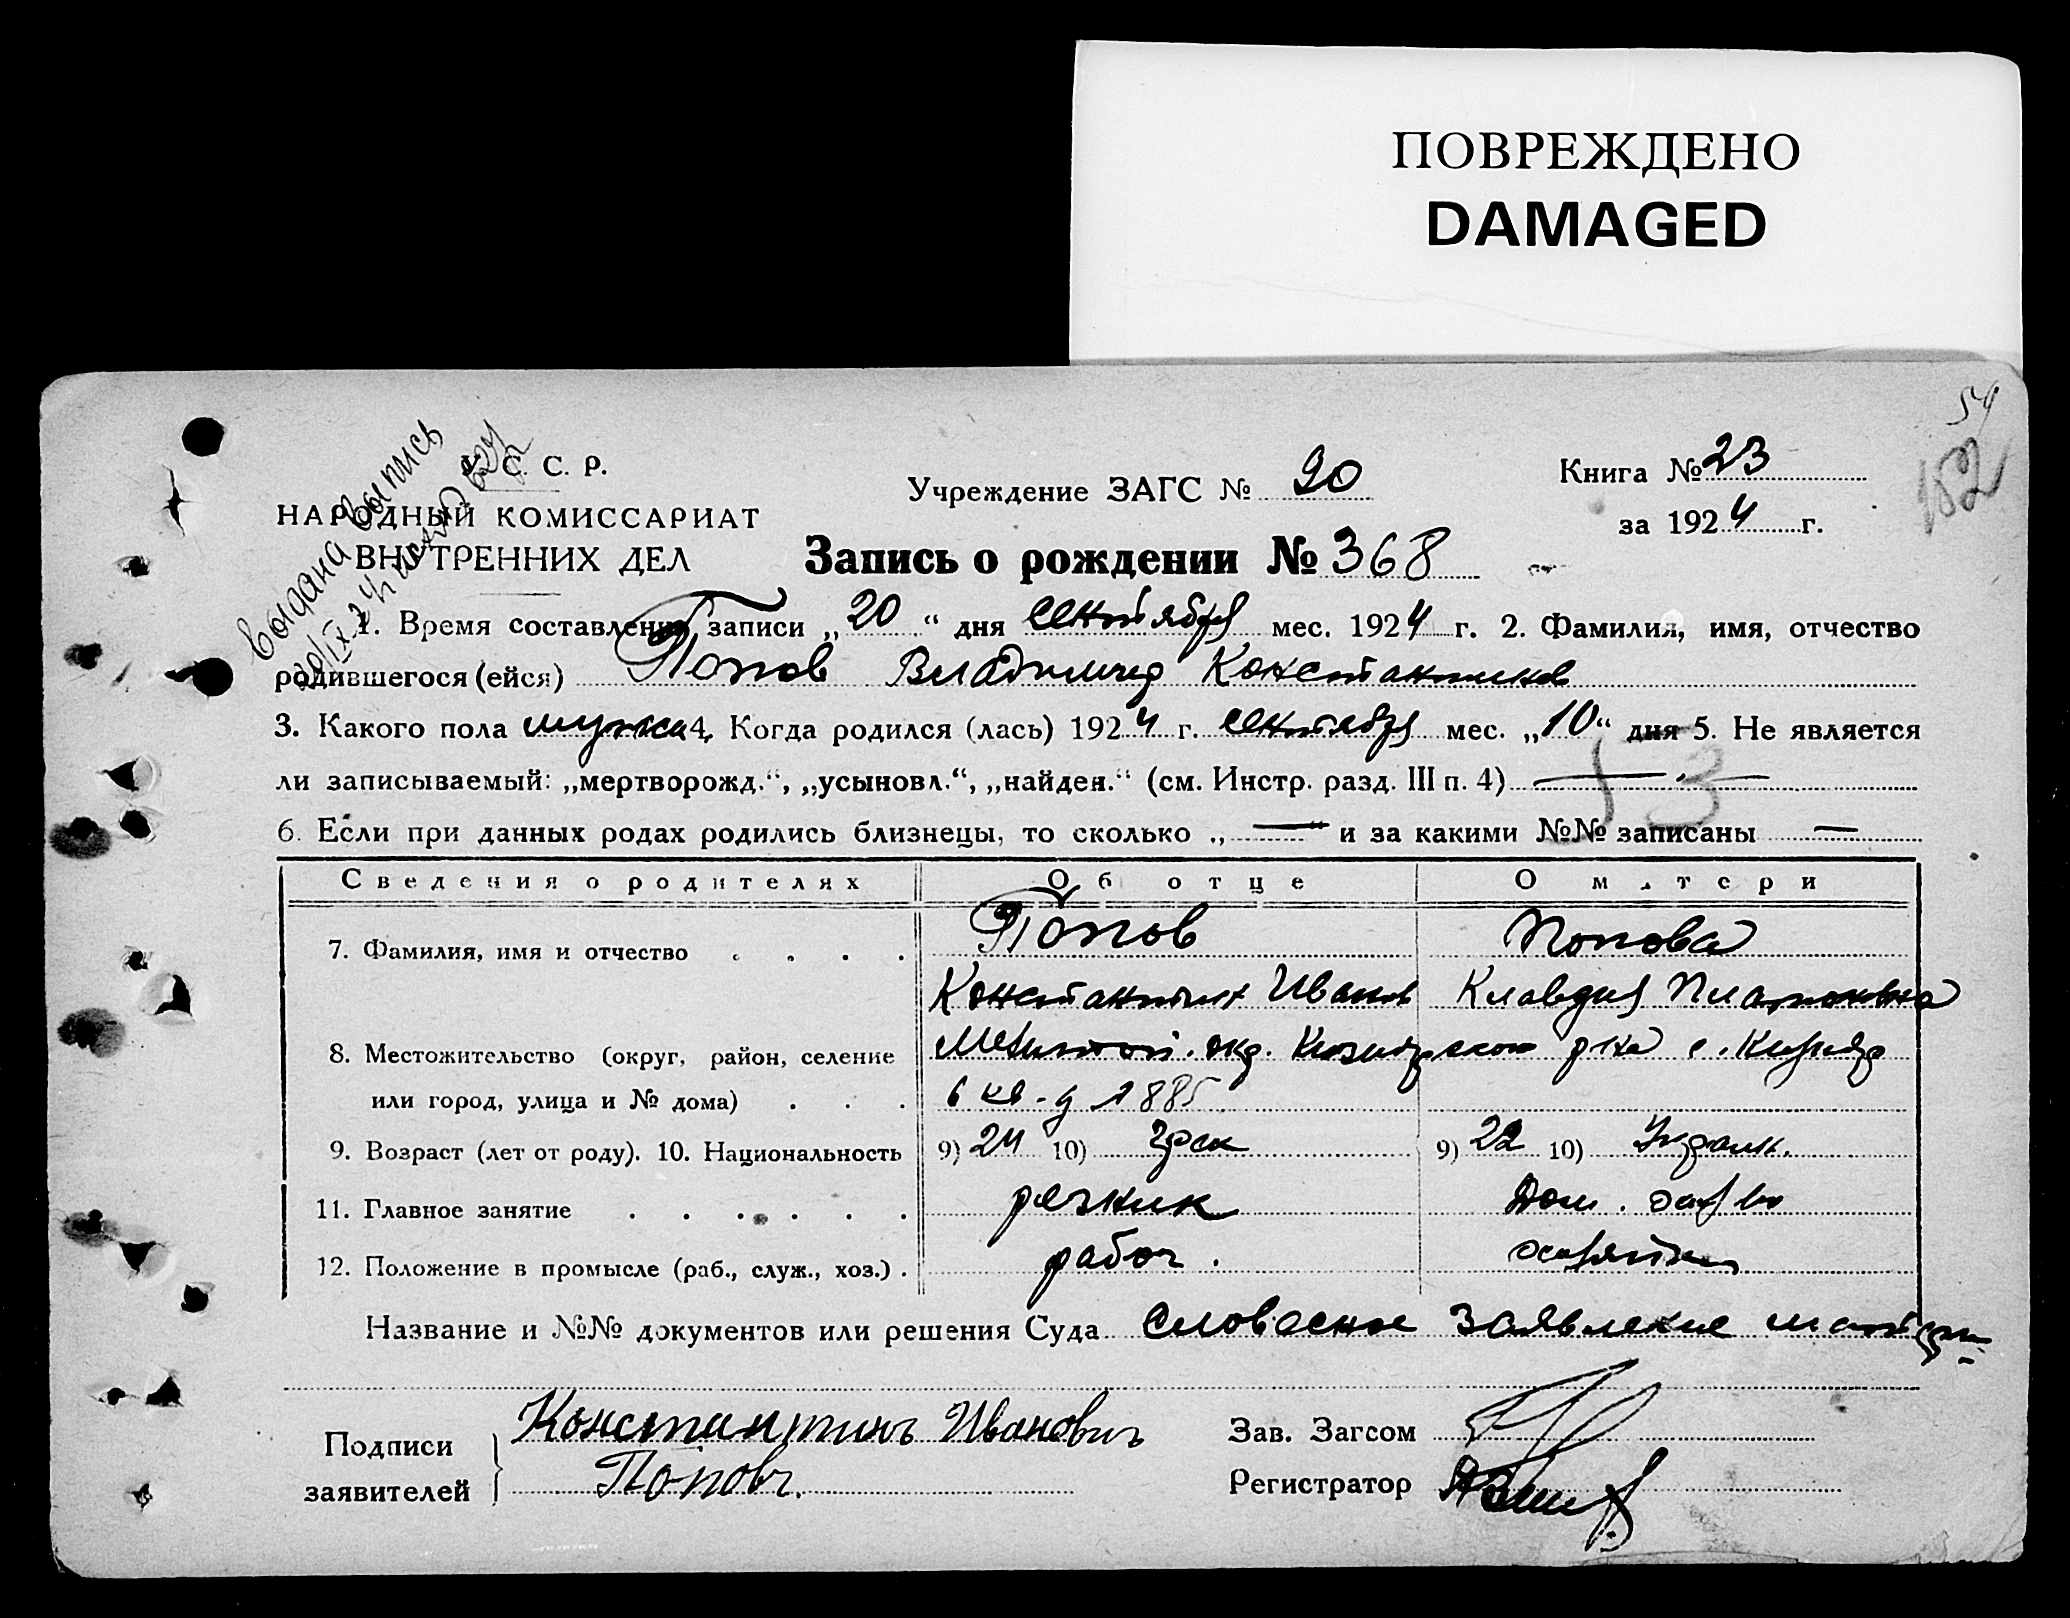 ПОВРЕЖДЕНО
DAMAGED
54
182
Выдана выпись
С. С. Р.
НАРОДНЫЙ КОМИССАРИАТ
ВНУТРЕННИХ ДЕЛ
Учреждение ЗАГС № 20
Книга № 23
за 1924 г.
Запись о рождении № 368
1. Время составления записи „20“ дня сентября мес. 1924 г. 2. Фамилия, имя, отчество
родившегося (ейся) Попов Владимир Константинов
3. Какого пола мужск 4. Когда родился (лась) 1924 г. сентября мес. „10“ дня 5. Не является
ли записываемый: „мертворожд.“, „усыновл.“, „найден.“ (см. Инстр. разд. III п. 4) —
53
6. Если при данных родах родились близнецы, то сколько „—“ и за какими №№ записаны —
Сведения о родителях Об отце О матери
7. Фамилия, имя и отчество . . . . Попов Попова
Константин Иванов Клавдия Платоновна
8. Местожительство (округ, район, селение Мелитоп. окр. Кизиярского р-на с. Кизияр
или город, улица и № дома) . . . 6 кв. д 1885
9. Возраст (лет от роду). 10. Национальность 9) 24 10) Грек 9) 22 10) Украин.
11. Главное занятие . . . . . . резник Дом. хоз-во
12. Положение в промысле (раб., служ., хоз.) . рабоч. хозяйка
Название и №№ документов или решения Суда Словесное заявление
Подписи заявителей } Константинъ Ивановичъ
Поповъ.
Зав. Загсом
Регистратор